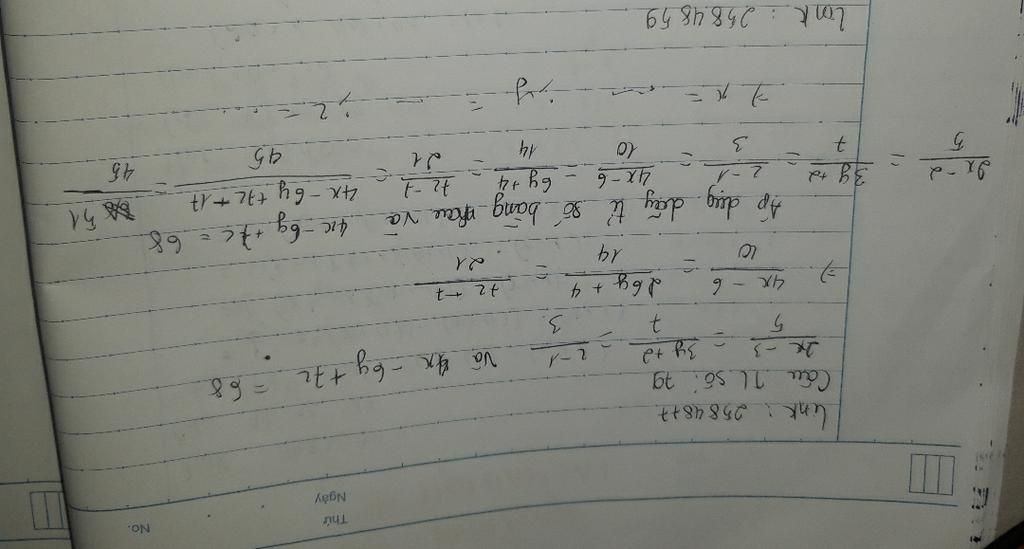 No.
Thứ
Ngày
Link : 2584877
Câu TL số : 79
2x-3/5 = 3y+2/7 = z-1/3 và 4x-6y+7z = 68
=> 4x-6/10 = 6y+4/14 = 7z-7/21
Áp dụng dãy tỉ số bằng nhau và 4x-6y+7z = 68
2x-2/5 = 3y+2/7 = z-1/3 = 4x-6/10 = 6y+4/14 = 7z-7/21 = 4x-6y+7z+17/45 = 51/45
=> x = ; y = ; z = ...
Link : 2584859